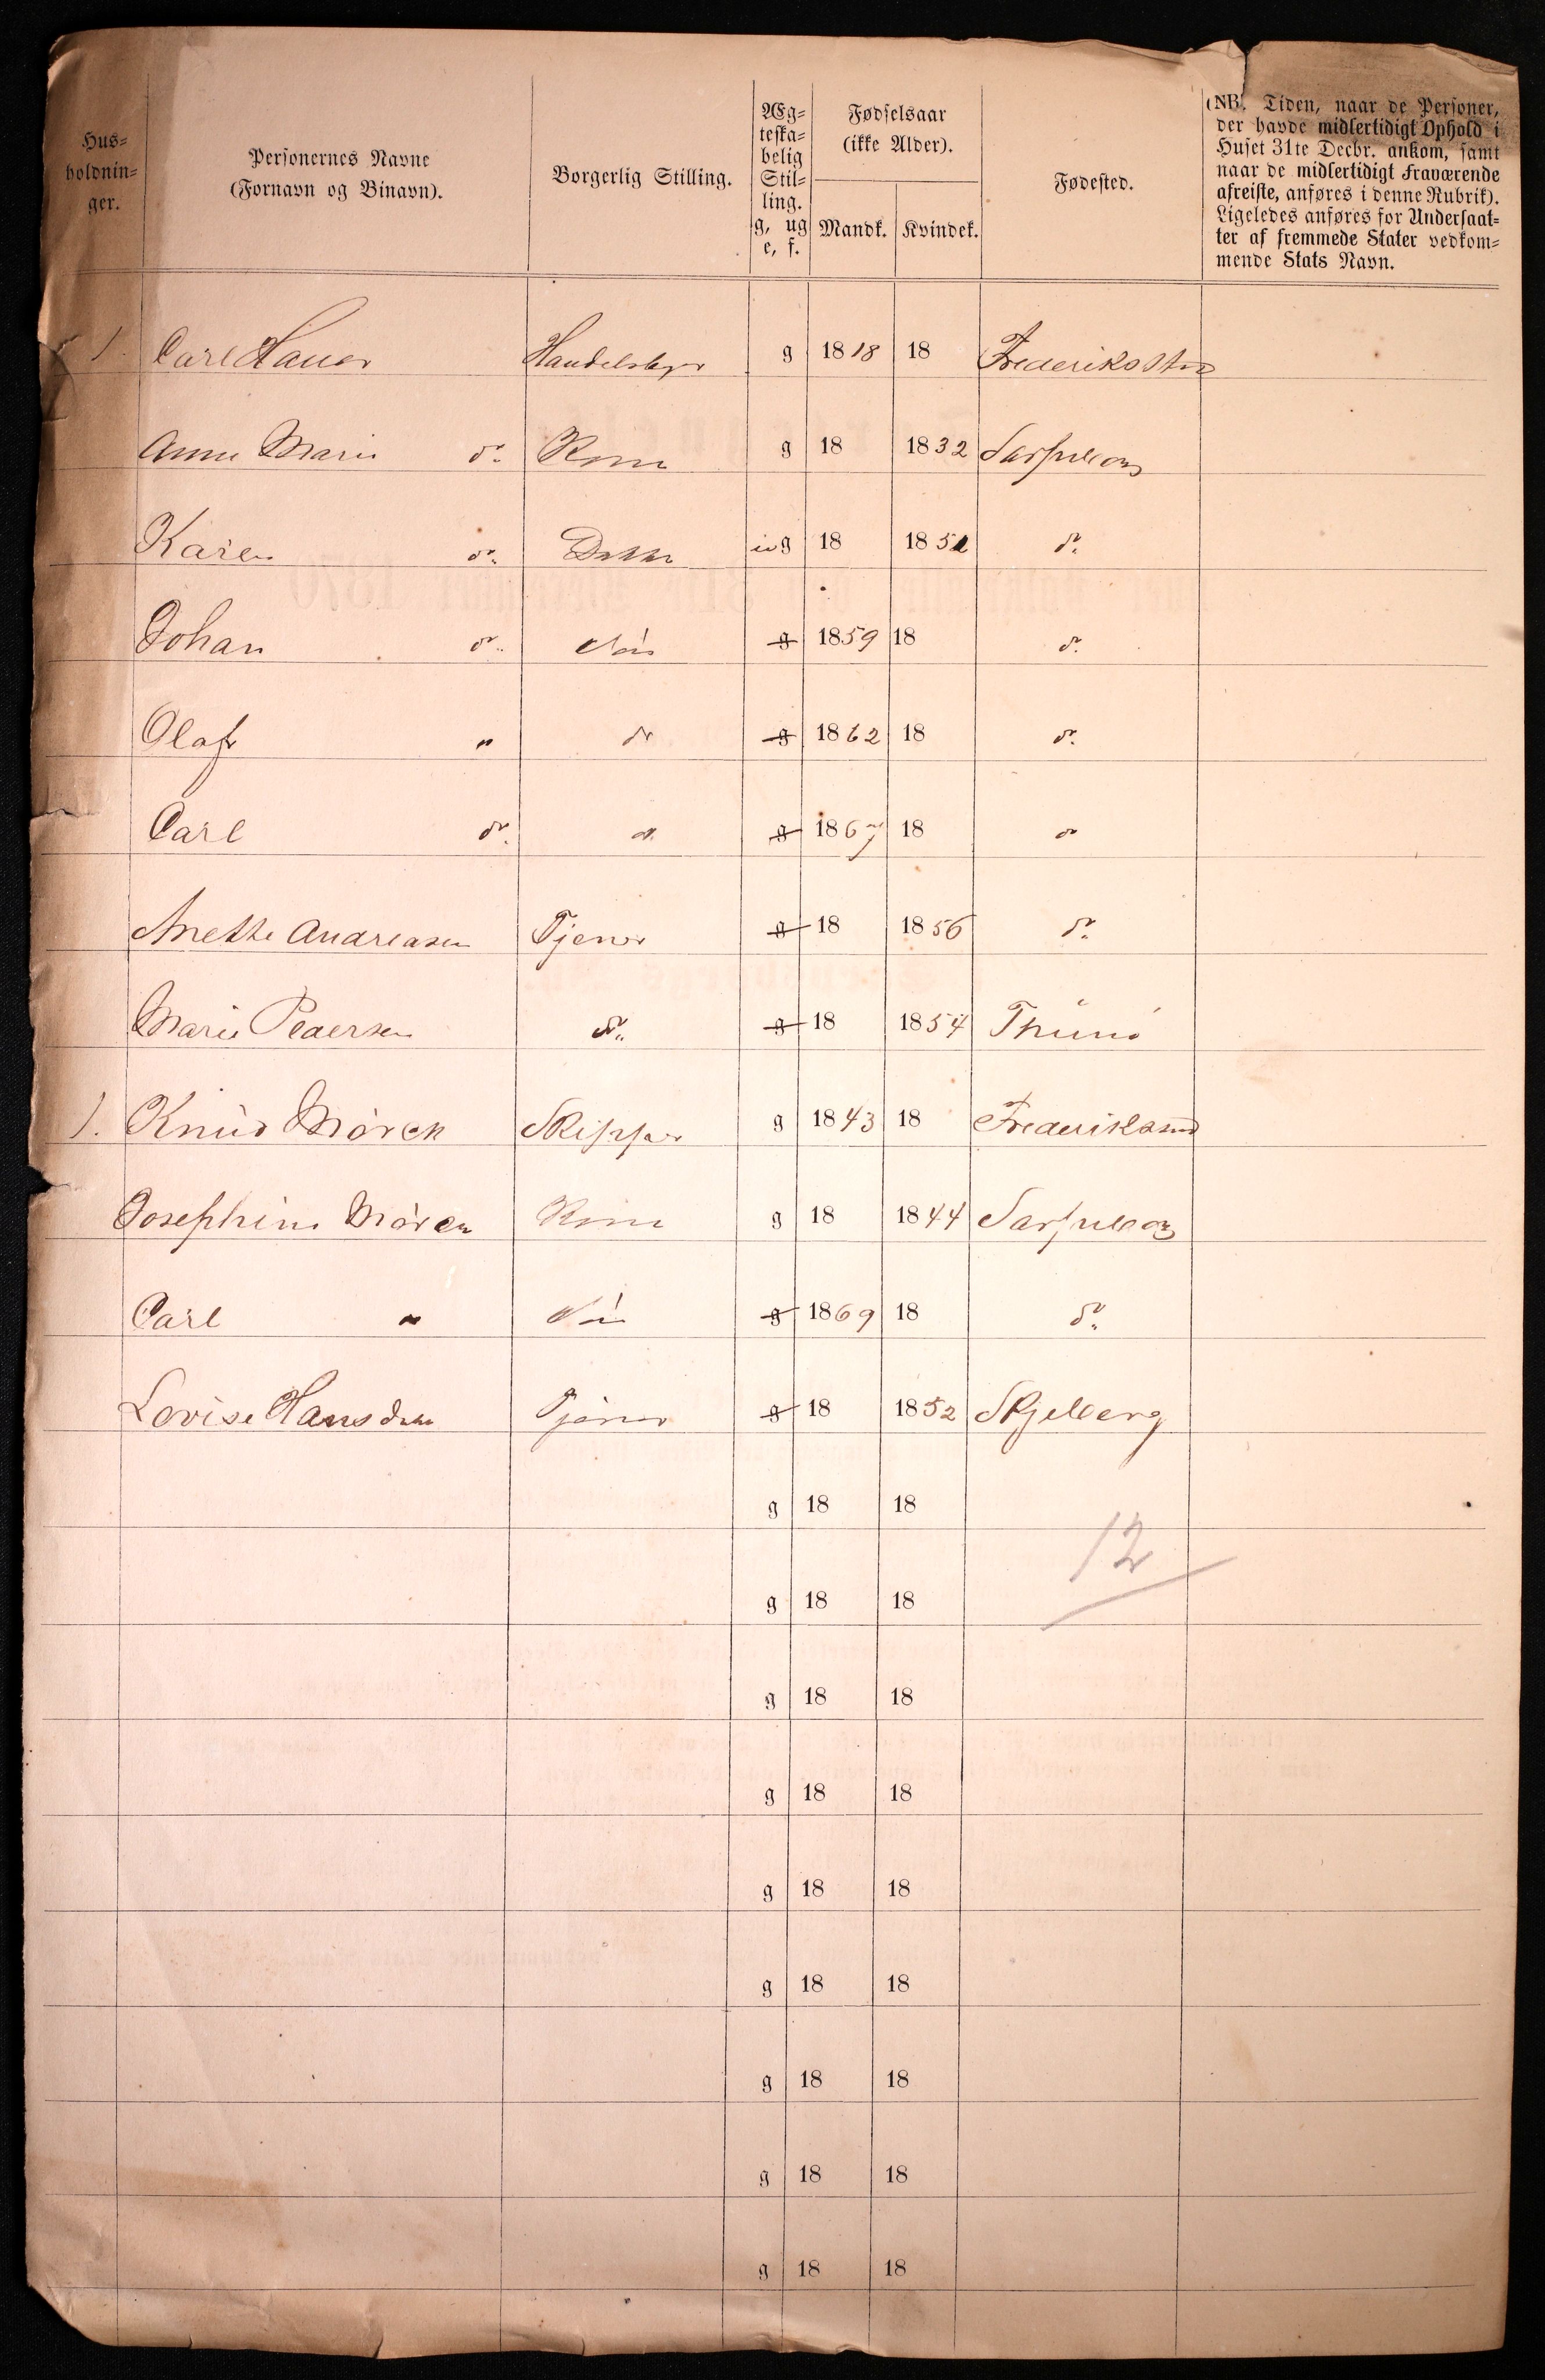 Hus=
holdnin=
ger.
Personernes Navne
(Fornavn og Binavn).
Borgerlig Stilling.
Æg=
teska=
belig
Stil=
ling.
g, ug
e, f.
Fødselsaar
(ikke Alder).
Mandk. Kvindek.
Fødested.
(NB. Tiden, naar de Personer,
der havde midlertidigt Ophold i
Huset 31te Decbr. ankom, samt
naar de midlertidigt Fraværende
afreiste, anføres i denne Rubrik).
Ligeledes anføres for Undersaat=
ter af fremmede Stater vedkom=
mende Stats Navn.
1. Carl g 1818 18
Anne Marie do. Kone g 18 1832 Sarpsborg
Karen do. ug 18 185 do.
Johan do. Sön g 1859 18 do.
Olaf " do g 1862 18 do.
Carl do. do. g 1867 18 do
Anette Andreasen Tjener g 18 1856 do.
Marie Pedersen do. g 18 1854 Thunö
1. Knud Mörck Skipper g 1843 18
Josephine Mörck Kone g 18 1844 Sarpsborg
Carl " Sön g 1869 18 do.
Lovise Hansdatter Tjener g 18 1852 Skjeberg
g 18 18
12
g 18 18
g 18 18
g 18 18
g 18 18
g 18 18
g 18 18
g 18 18
g 18 18